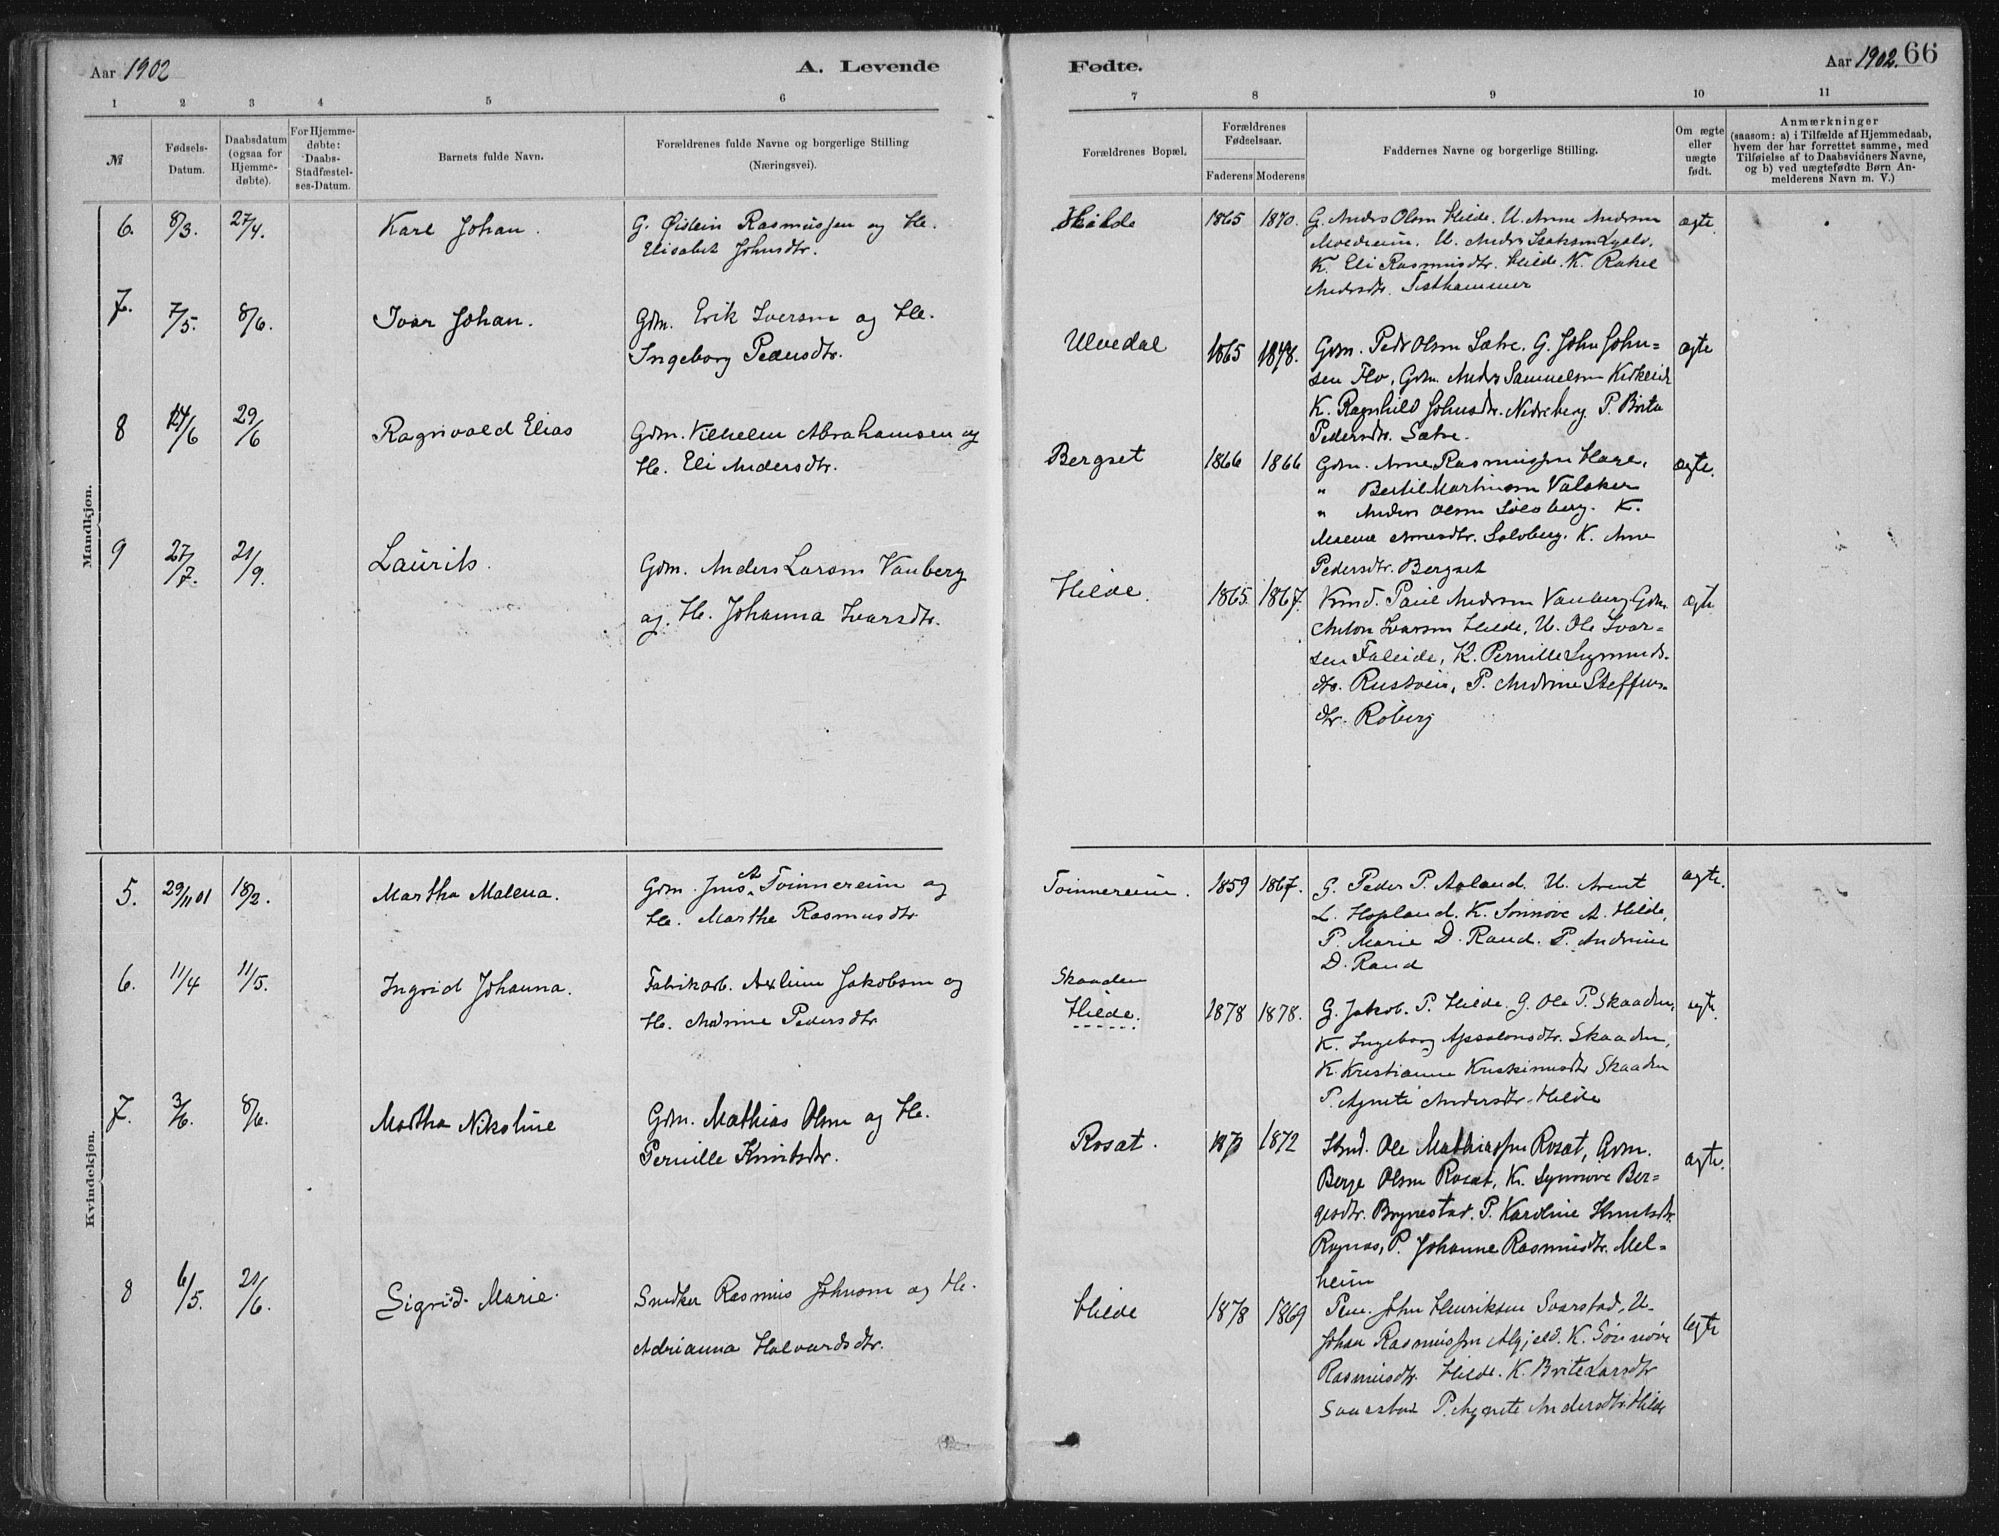 Aar 1902
A. Levende
Fødte.
Aar 1902. 66
1 2 3 4 5 6 7 8 9 10 11
№
Fødsels-
Datum.
Daabsdatum
(ogsaa for
Hjemme-
døbte).
For Hjemme-
døbte:
Daabs-
Stadfæstel-
ses-Datum.
Barnets fulde Navn.
Forældrenes fulde Navne og borgerlige Stilling
(Næringsvei).
Forældrenes Bopæl.
Forældrenes
Fødselsaar.
Faderens Moderens
Faddernes Navne og borgerlige Stilling.
Om ægte
eller
uægte
født.
Anmærkninger
(saasom: a) i Tilfælde af Hjemmedaab,
hvem der har forrettet samme, med
Tilføielse af to Daabsvidners Navne,
og b) ved uægtefødte Børn An-
melderens Navn m. V.)
Mandkjøn.
6. 8/3. 27/4. Karl Johan.
G. Øistein Rasmussen og He.
Elisabet Johnsdtr.
Hilde 1865 1870.
G. Anders Olsen Hilde. U. Anne Andersen
U. Anders Isaksen
K. Eli Rasmusdtr. Hilde. K. Rakel
Andersdtr. Tisthammer
ægte.
7. 7/5. 8/6. Ivar Johan.
Gdm. Erik Iversen og He.
Ingeborg Pedersdtr.
Ulvedal 1865 1878.
Gdm. Peder Olsen Sætre. G. John John-
sen Flo, Gdm. Anders Samuelsen
K. Ragnhild Johnsdtr. Nedreberg P. Brita
Pedersdtr. Sætre.
ægte
8 14/6 29/6 Ragnvald Elias
Gdm. Vilhelm Abrahamsen og
He. Eli Andersdtr.
Bergset 1866 1866
Gdm. Arne Rasmussen Hage,
" Bertil Martinsen Valaker
" Anders Olsen Solvberg. K.
Malena Arnesdtr. Solvberg. K. Ane
Pedersdtr. Bergset
ægte.
9 27/7. 21/9. Laurits.
Gdm. Anders Larsen Vanberg
og He. Johanna Ivarsdtr.
Hilde. 1865. 1867.
Knud. Paul Andersen Vanberg Gdm.
Anton Ivarsen Hilde, U. Ole Ivar-
sen Faleide, K. Pernille Sigmunds-
dtr. Rustøen, P. Andrine Steffens-
dtr. Roberg
ægte
Kvindekjøn.
5. 29/11 01 18/2. Martha Malena.
Gdm. Jens A. Toinnereim og
He. Marthe Rasmusdtr
Toinnereim. 1859 1867.
G. Peder P. Aaland. U. Arent
L. Hopland. K. Sønnøve A. Hilde,
P. Marie D. Rand. P. Andrine
D. Rand
ægte.
6. 11/4 11/5. Ingrid Johanna.
Fabrikarb. Jakobsen og
He. Pedersdtr
Skaaden
Hilde. 1878 1878.
G. Jakob. P. Hilde. G. Ole P. Skaaden,
K. Ingeborg Apsalonsdtr. Skaaden,
K. Kristianne Kristinusdtr Skaaden
P. Agnete Andersdtr. Hilde
ægte.
7. 3/6. 8/6. Martha Nikoline
Gdm. Mathias Olsen og He.
Pernille Knutsdtr.
Rosæt. 1872
Ole Mathiassen Rosæt, Gdm.
Berge Olsen Rosæt, K. Synnøve Ber-
gesdtr. Brynestad. P. Karoline Knutsdtr.
P. Johanne Rasmusdtr. Mel-
heim
ægte.
8 6/5. 21/6. Sigrid Marie.
Snedker Rasmus Johnsen og He.
Adrianna Halvardsdtr.
Hilde 1878 1869
Pen. John Henriksen Svarstad, U.
Johan Rasmussen K. Sønnøve
Rasmusdtr. Hilde. K. Brite Larsdtr
Svarstad P. Agnete Andersdtr Hilde
ægte